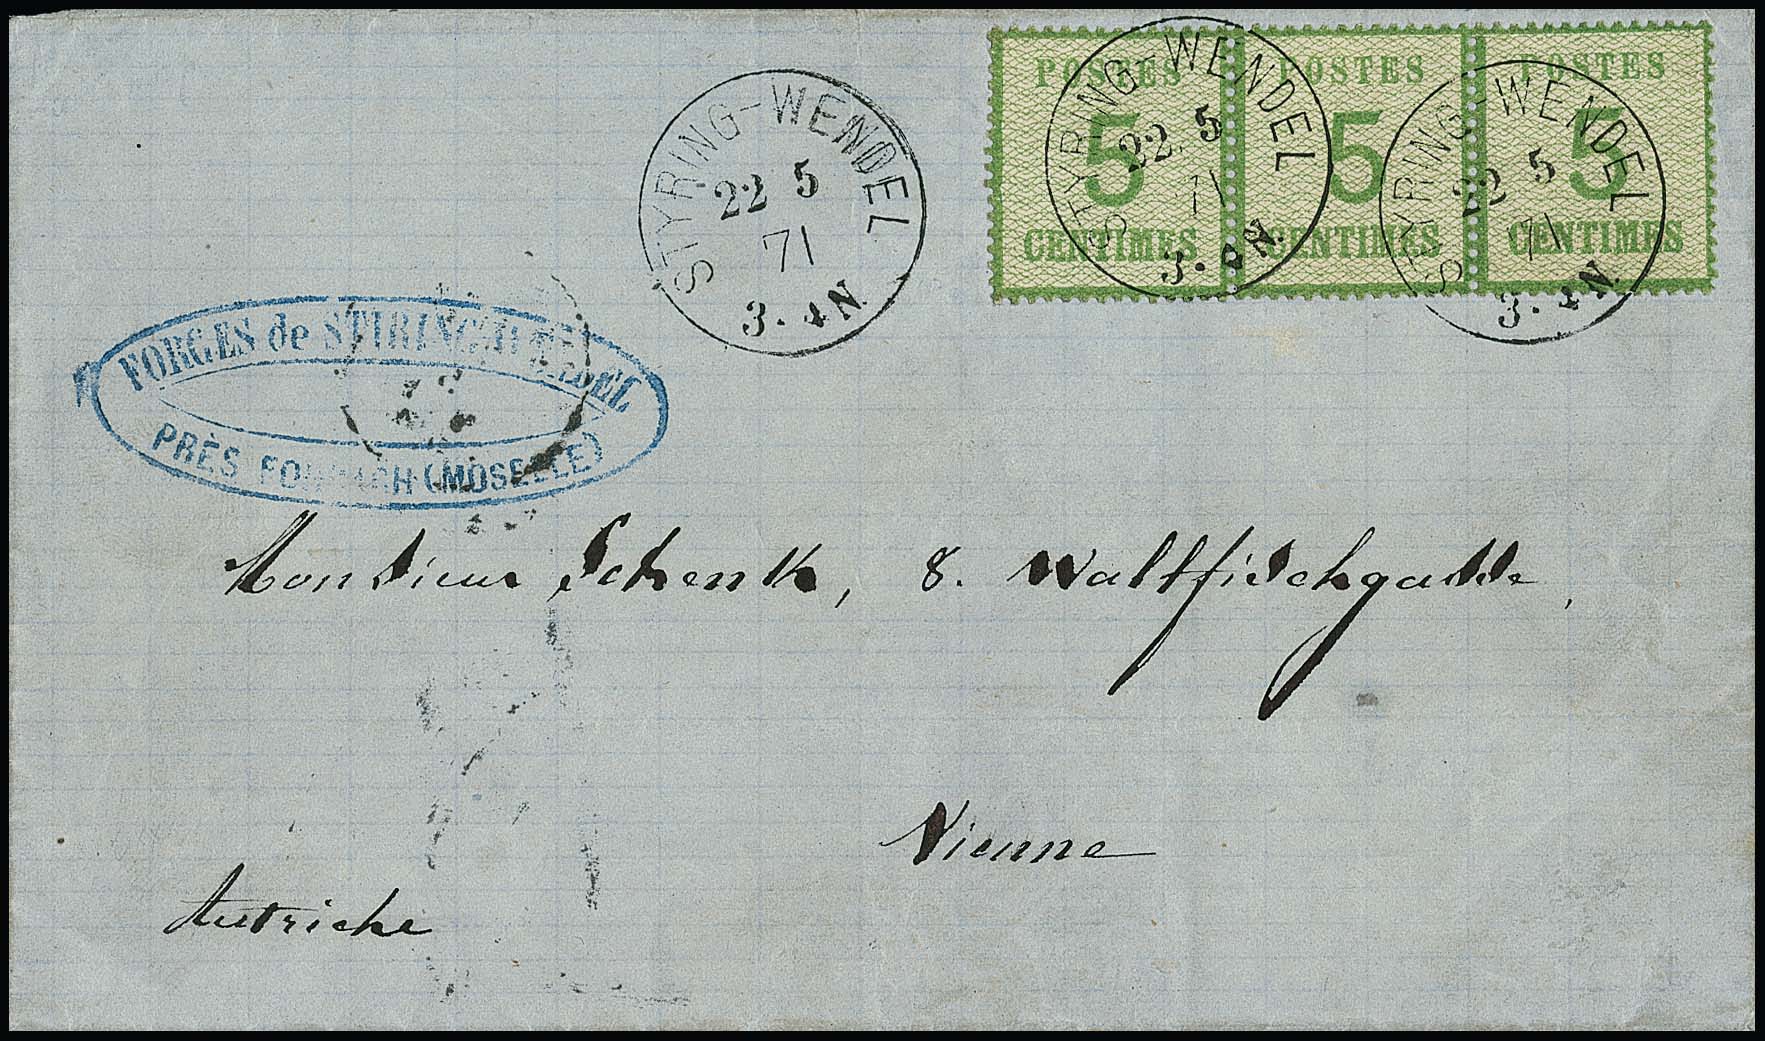 POSTES POSTES POSTES
5 5 5
CENTIMES CENTIMES CENTIMES
STYRING-WENDEL
22 5
71
3-4N.
STYRING-WENDEL
22 5
71
3-4N.
STYRING-WENDEL
22 5
71
3-4N.
FORGES de STIRING-WENDEL
PRÈS FORBACH (MOSELLE)
Monsieur Schenk, 8. Wallfischgasse,
Vienne
Autriche